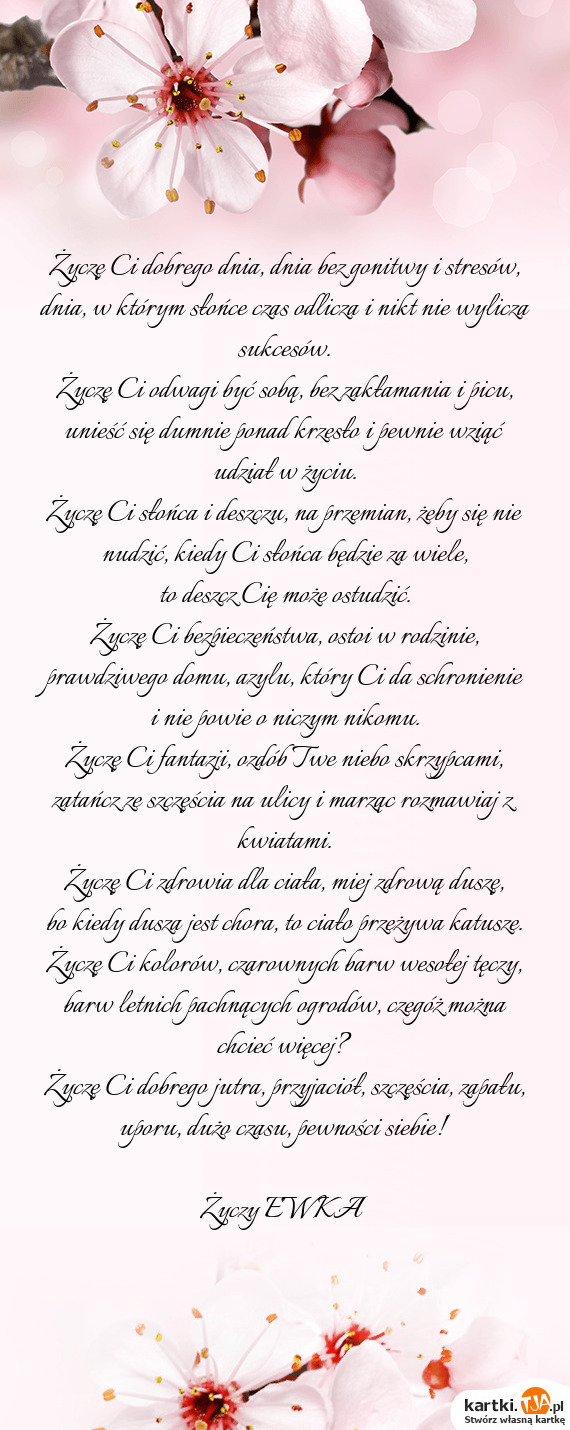 Życzę Ci dobrego dnia, dnia bez gonitwy i stresów,
dnia, w którym słońce czas odlicza i nikt nie wylicza
sukcesów.
Życzę Ci odwagi być sobą, bez zakłamania i picu,
unieść się dumnie ponad krzesło i pewnie wziąć
udział w życiu.
Życzę Ci słońca i deszczu, na przemian, żeby się nie
nudzić, kiedy Ci słońca będzie za wiele,
to deszcz Cię może ostudzić.
Życzę Ci bezpieczeństwa, ostoi w rodzinie,
prawdziwego domu, azylu, który Ci da schronienie
i nie powie o niczym nikomu.
Życzę Ci fantazji, ozdób Twe niebo skrzypcami,
zatańcz ze szczęścia na ulicy i marząc rozmawiaj z
kwiatami.
Życzę Ci zdrowia dla ciała, miej zdrową duszę,
bo kiedy dusza jest chora, to ciało przeżywa katusze.
Życzę Ci kolorów, czarownych barw wesołej tęczy,
barw letnich pachnących ogrodów, czegóż można
chcieć więcej?
Życzę Ci dobrego jutra, przyjaciół, szczęścia, zapału,
uporu, dużo czasu, pewności siebie!
Życzy EWKA
kartki.TJA.pl
Stwórz własną kartkę